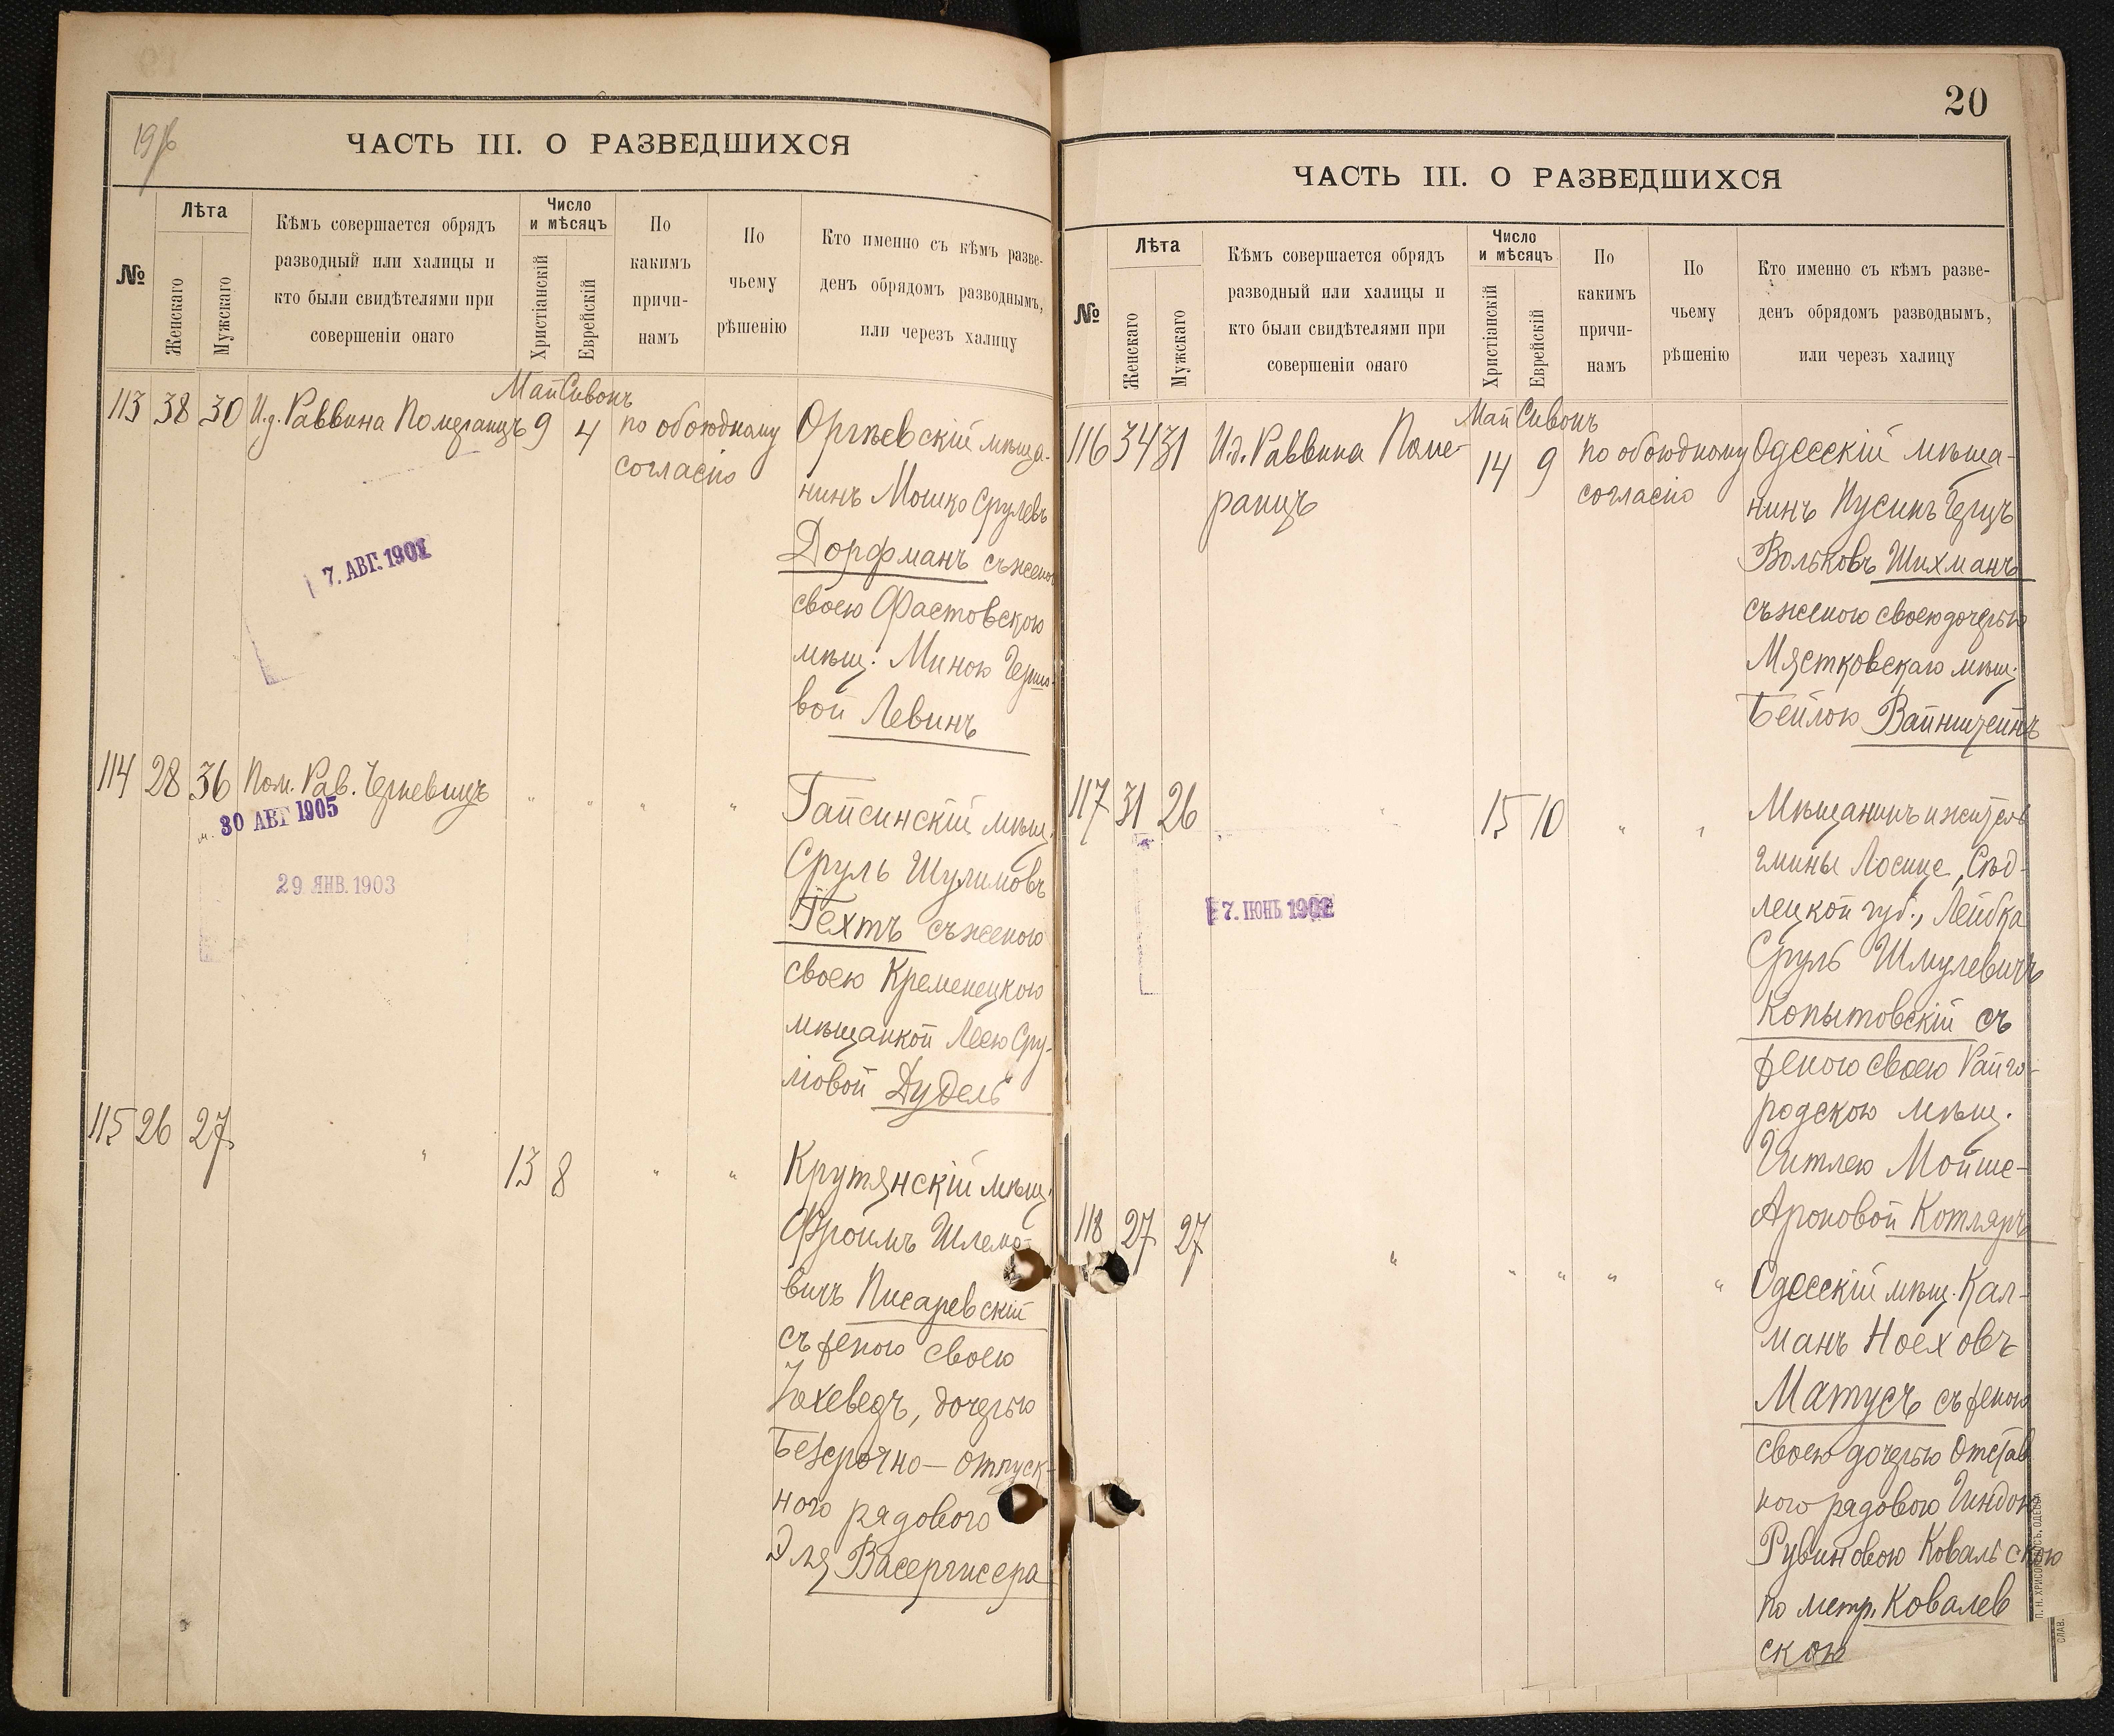 ЧАСТЬ III. О РАЗВЕДШИХСЯ
№
Лѣта
Женскаго
Мужскаго
Кѣмъ совершается обрядъ
разводный или халицы и
кто были свидѣтелями при
совершеніи онаго
Число
и мѣсяцъ
Христіанскій
Еврейскій
По
какимъ
причи-
намъ
По
чьему
рѣшенію
Кто именно съ кѣмъ разве-
денъ обрядомъ разводнымъ,
или черезъ халицу
Май Сивонъ
113 38 30 И.д. Раввина Померанцъ 9 4 по обоюдному
согласію
Оргѣевскій мѣща-
нинъ Мошко Срулевъ
Дорфманъ съ женою
своею Фастовскою
мѣщ. Миною
вой Левинъ
7. АВГ. 1902
114 28 36 Пом. Рав. Черкевицъ " " " "
30 АВГ 1905
29 ЯНВ. 1903
Гайсинскій мѣщ.
Сруль Шулимовъ
Техтъ съ женою
своею Кременецкою
мѣщанкой Леею Сру-
ловой Дудель
115 26 27 " 13 8 " "
Крутянскій мѣщ.
Фроимъ Шлемо-
вичъ Писаревскій
съ женою своею
Іохеведъ, дочерью
Безсрочно-отпуск-
ного рядового
Эля Васергисера
20
ЧАСТЬ III. О РАЗВЕДШИХСЯ
№
Лѣта
Женскаго
Мужскаго
Кѣмъ совершается обрядъ
разводный или халицы и
кто были свидѣтелями при
совершеніи онаго
Число
и мѣсяцъ
Христіанскій
Еврейскій
По
какимъ
причи-
намъ
По
чьему
рѣшенію
Кто именно съ кѣмъ разве-
денъ обрядомъ разводнымъ,
или черезъ халицу
Май Сивонъ
116 34 31 И.д. Раввина Поме-
ранцъ
14 9 по обоюдному
согласію
Одесскій мѣща-
нинъ Нусинъ Герцъ
Вольковъ Шихманъ
съ женою своею дочерью
Мястковскаго мѣщ.
Бейлою Вайнштейнъ
117 31 26 " 15 10 " "
7. ІЮНЬ 1902
Мѣщанинъ и житель
гмины Лосице, Сѣд-
лецкой губ., Лейбка
Сруль Шмулевичъ
Копытовскій съ
женою своею Райго-
родскою мѣщ.
Гитлею Мойше-
Ароновой Котляръ
118 27 27 " " " " "
Одесскій мѣщ. Кал-
манъ Ноеховъ
Матусъ съ женою
своею дочерью Отстав
ного рядового Гиндою
Рувиновою Ковальскою
по метр. Ковалев
скою
П. Н. ХРИСОГЕЛОСЪ, ОДЕССА